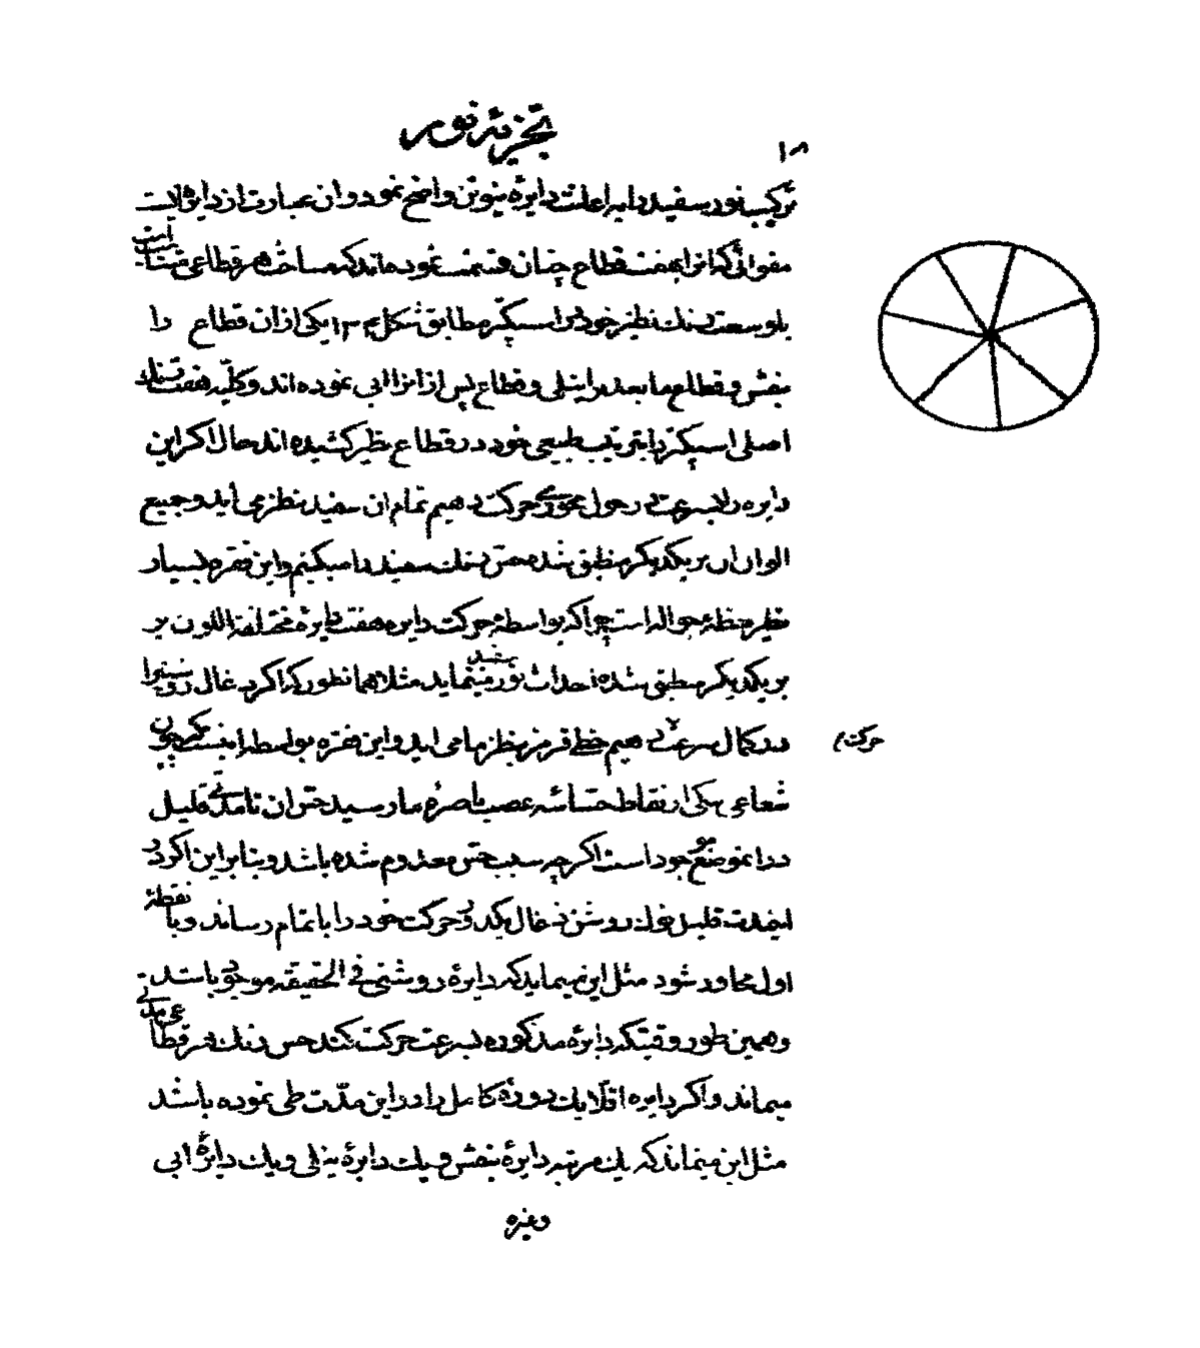 تجزیهٔ نور
١٨
ترکیب نور سفید را به اعانت دایرهٔ نیوتن واضح نمود و ان عبارت از دایره ایست
مقوائی که انرا بهفت قطاع چنان قسمت نموده اند که مساحت هر قطاعی متناسب است
با وسعت رنك نظیر خود در اسپکتر مطابق شکل ١٣ یکی از ان قطاع را
بنفش و قطاع ما بعد را نیلی و قطاع پس از انرا ابی نموده اند و کلیه هفت رنك
اصلی اسپکتر را بترتیب طبیعی خود در قطاع نظیر کشیده اند حال اکر این
دایره را بسرعت در حول محوری حرکت دهیم تمام ان سفید بنظر می اید و جمیع
الوان ان بر یکدیکر منطبق شده حس رنك سفید را میکنیم و این فقره بسیار
نظیر شعله جواله است چرا که بواسطهٔ حرکت دایره هفت دایرهٔ مختلفة اللون بر
بر یکدیکر منطبق شده احداث نور سفید مینماید مثلا همانطور که اکر ذغال روشنی را
در کمال سرعت دهیم خطی قرمز بنظر ما می اید و این فقره بواسطه اینست که چون
حرکت م
شعاعی بیکی از نقاط حساسه عصب باصرهٔ ما رسید حس ان تا مدتی قلیل
در انموضع موجود است اکر چه سبب حس معدوم شده باشد و بنابراین اکر در
اینمدت قلیل بتواند روشن ذغال یکدور حرکت خود را باتمام رساند و با نقطهٔ
اول مجاور شود مثل این مینماید که دایرهٔ روشنی فی الحقیقه موجود باشد
و همین طور وقتیکه دایرهٔ مذکوره بسرعت حرکت بکند حس رنك هر قطاعی مدتی
میماند و اکر دایره اقلا یك دورهٔ کامل را در این مدت طی نموده باشد
مثل این مینماند که یك مرتبه دایرهٔ بنفش و یك دایرهٔ نیلی و یك دایرهٔ ابی
وغیره